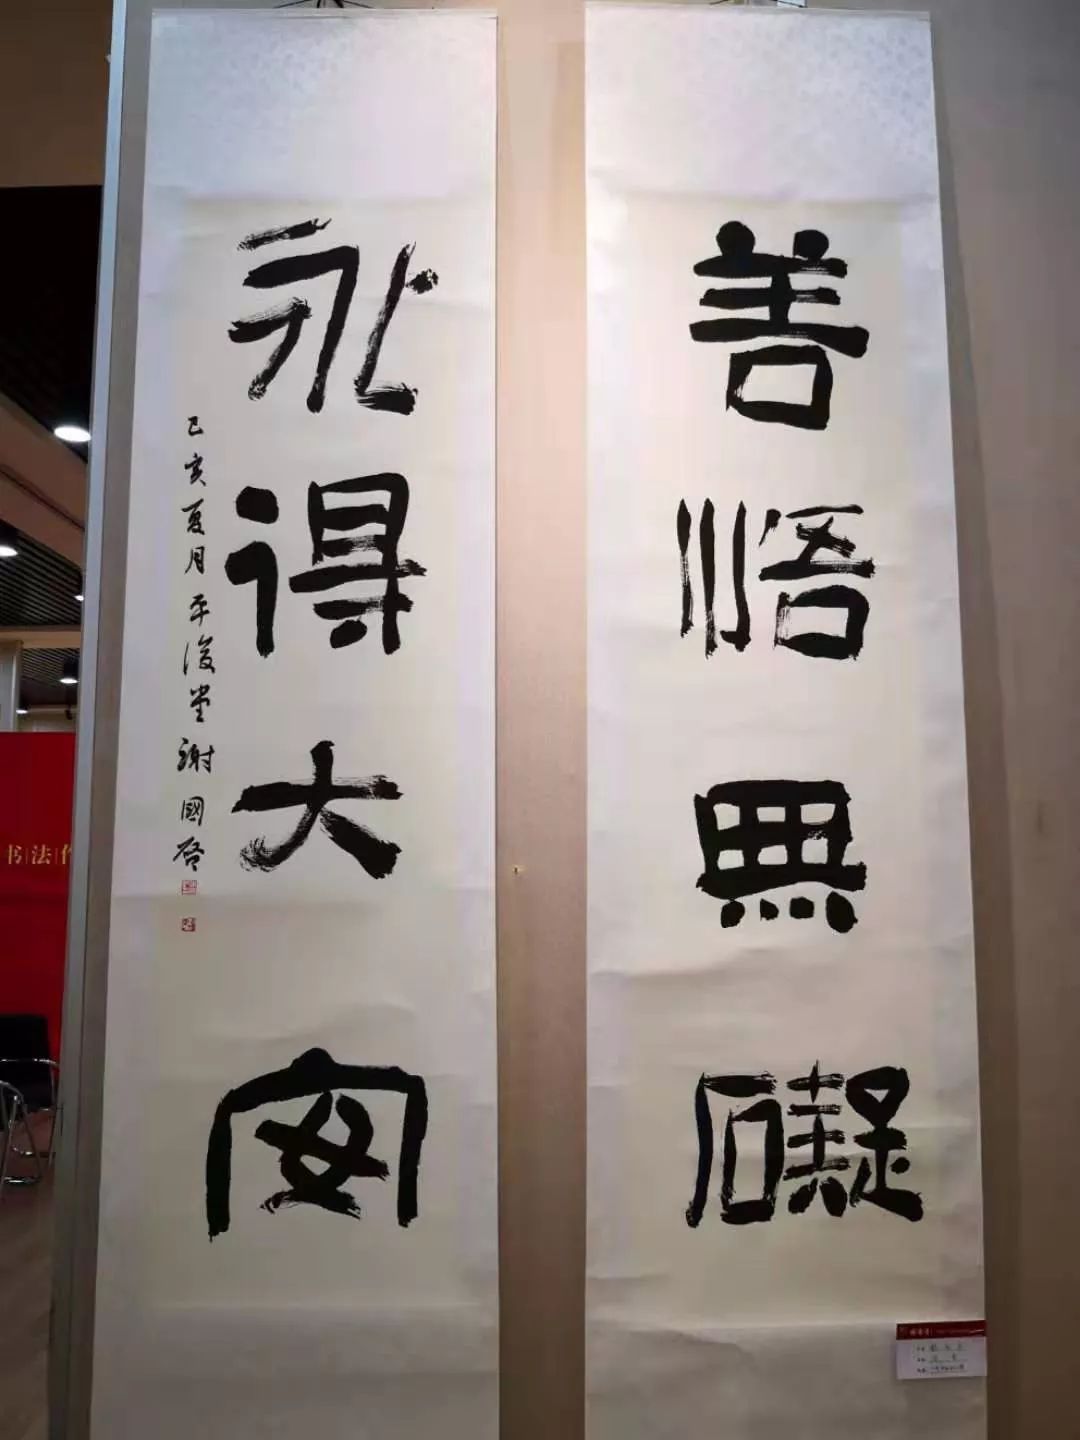 善悟無礙
永得大安
己亥夏月平復堂謝國啓
书法作